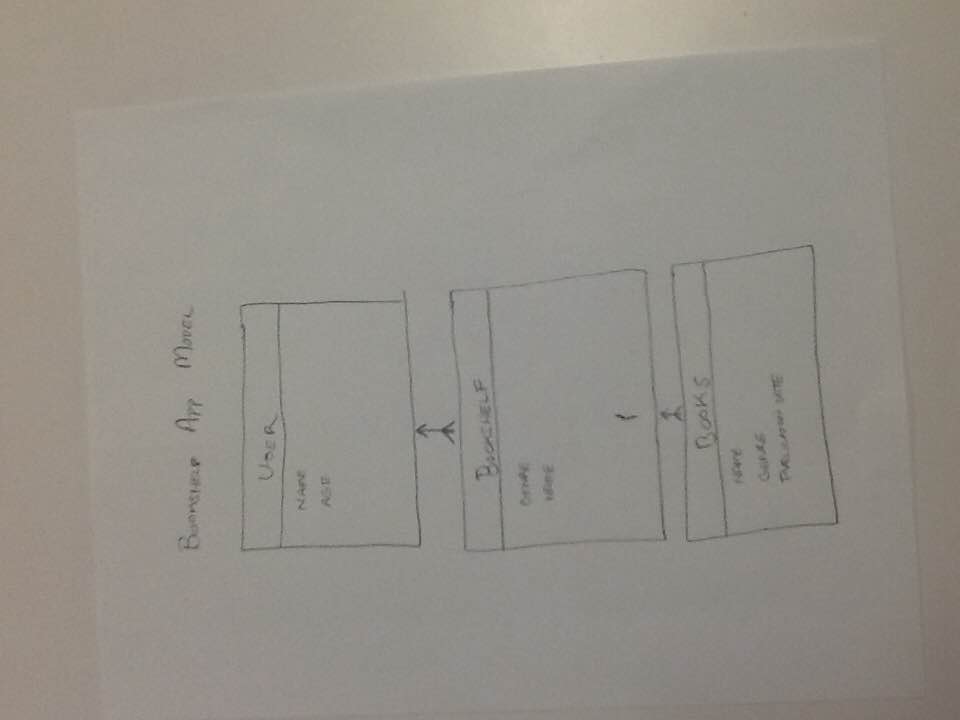 BOOKSHELF APP MODEL
USER
NAME
AGE
BOOKSHELF
GENRE
NAME
BOOKS
NAME
GENRE
PUBLICATION DATE